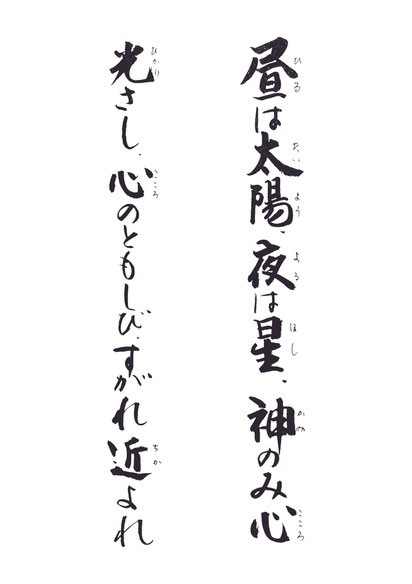 昼は太陽、夜は星、神のみ心
光さし、心のともしび、すがれ近よれ